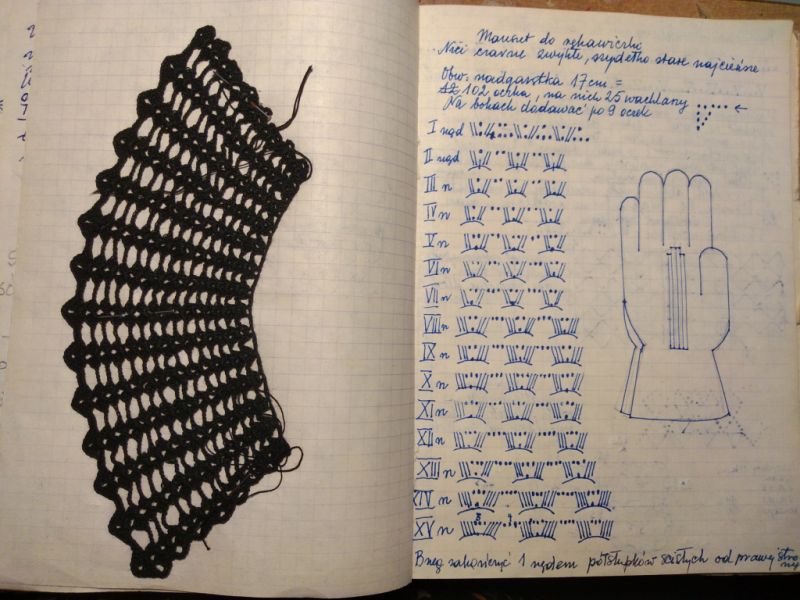 Mankiet do rękawiczki
Nici czarne zwykłe, szydełko stare najcieńsze
Obw. nadgarstka 17 cm =
102 oczka, na nich 25 wachlarzy
Na bokach dodawać po 9 oczek
I rząd
II rząd
III n
IV n
V n
VI n
VII n
VIII n
IX n
X n
XI n
XII n
XIII n
XIV n
XV n
Brzeg zakończyć 1 rzędem półsłupków ścisłych od prawej strony